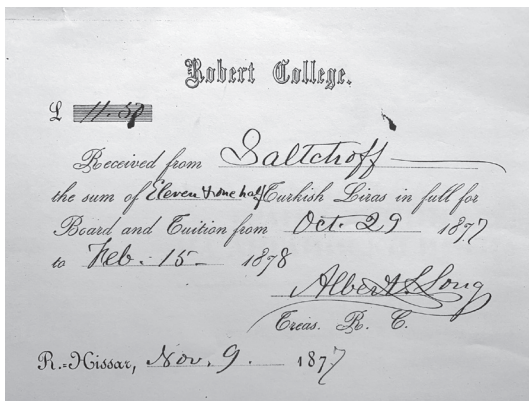 Robert College.
£ 11.50
Received from Saltchoff
the sum of Eleven & one half Turkish Liras in full for
Board and Tuition from Oct. 29 1877
to Feb. 15 1878
Albert L. Long
Treas. R. C.
R.=Hissar, Nov. 9. 1877